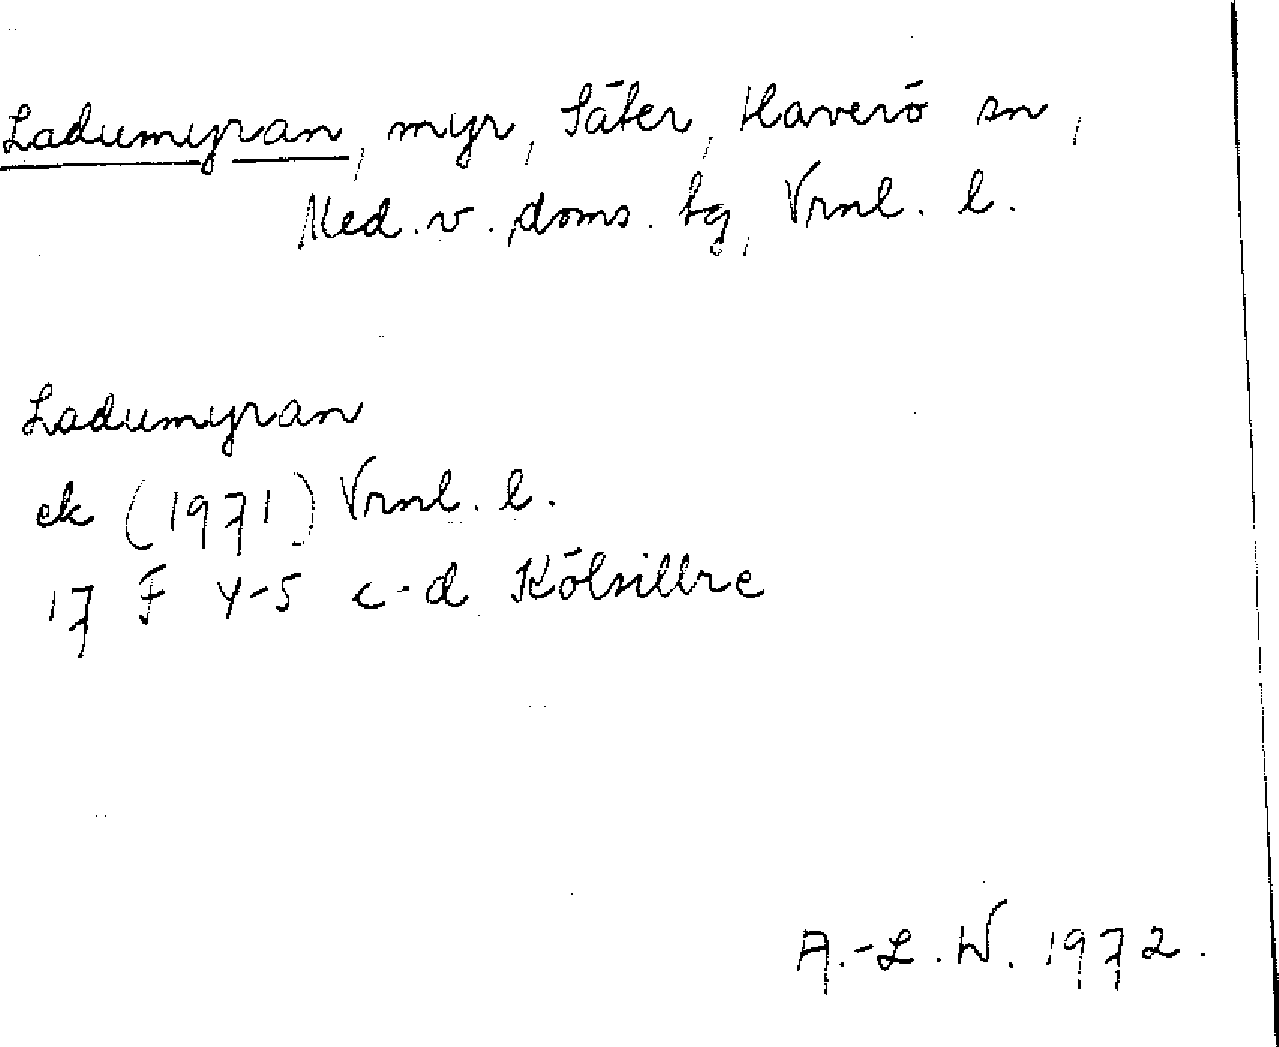 Ladumyran, myr, Säter, Haverö sn,
Med. v. doms. tg, Vrnl. l.
Ladumyran
ek (1971) Vrnl. l.
17 F 4-5 c-d Kölsillre
A.-L. W. 1972.